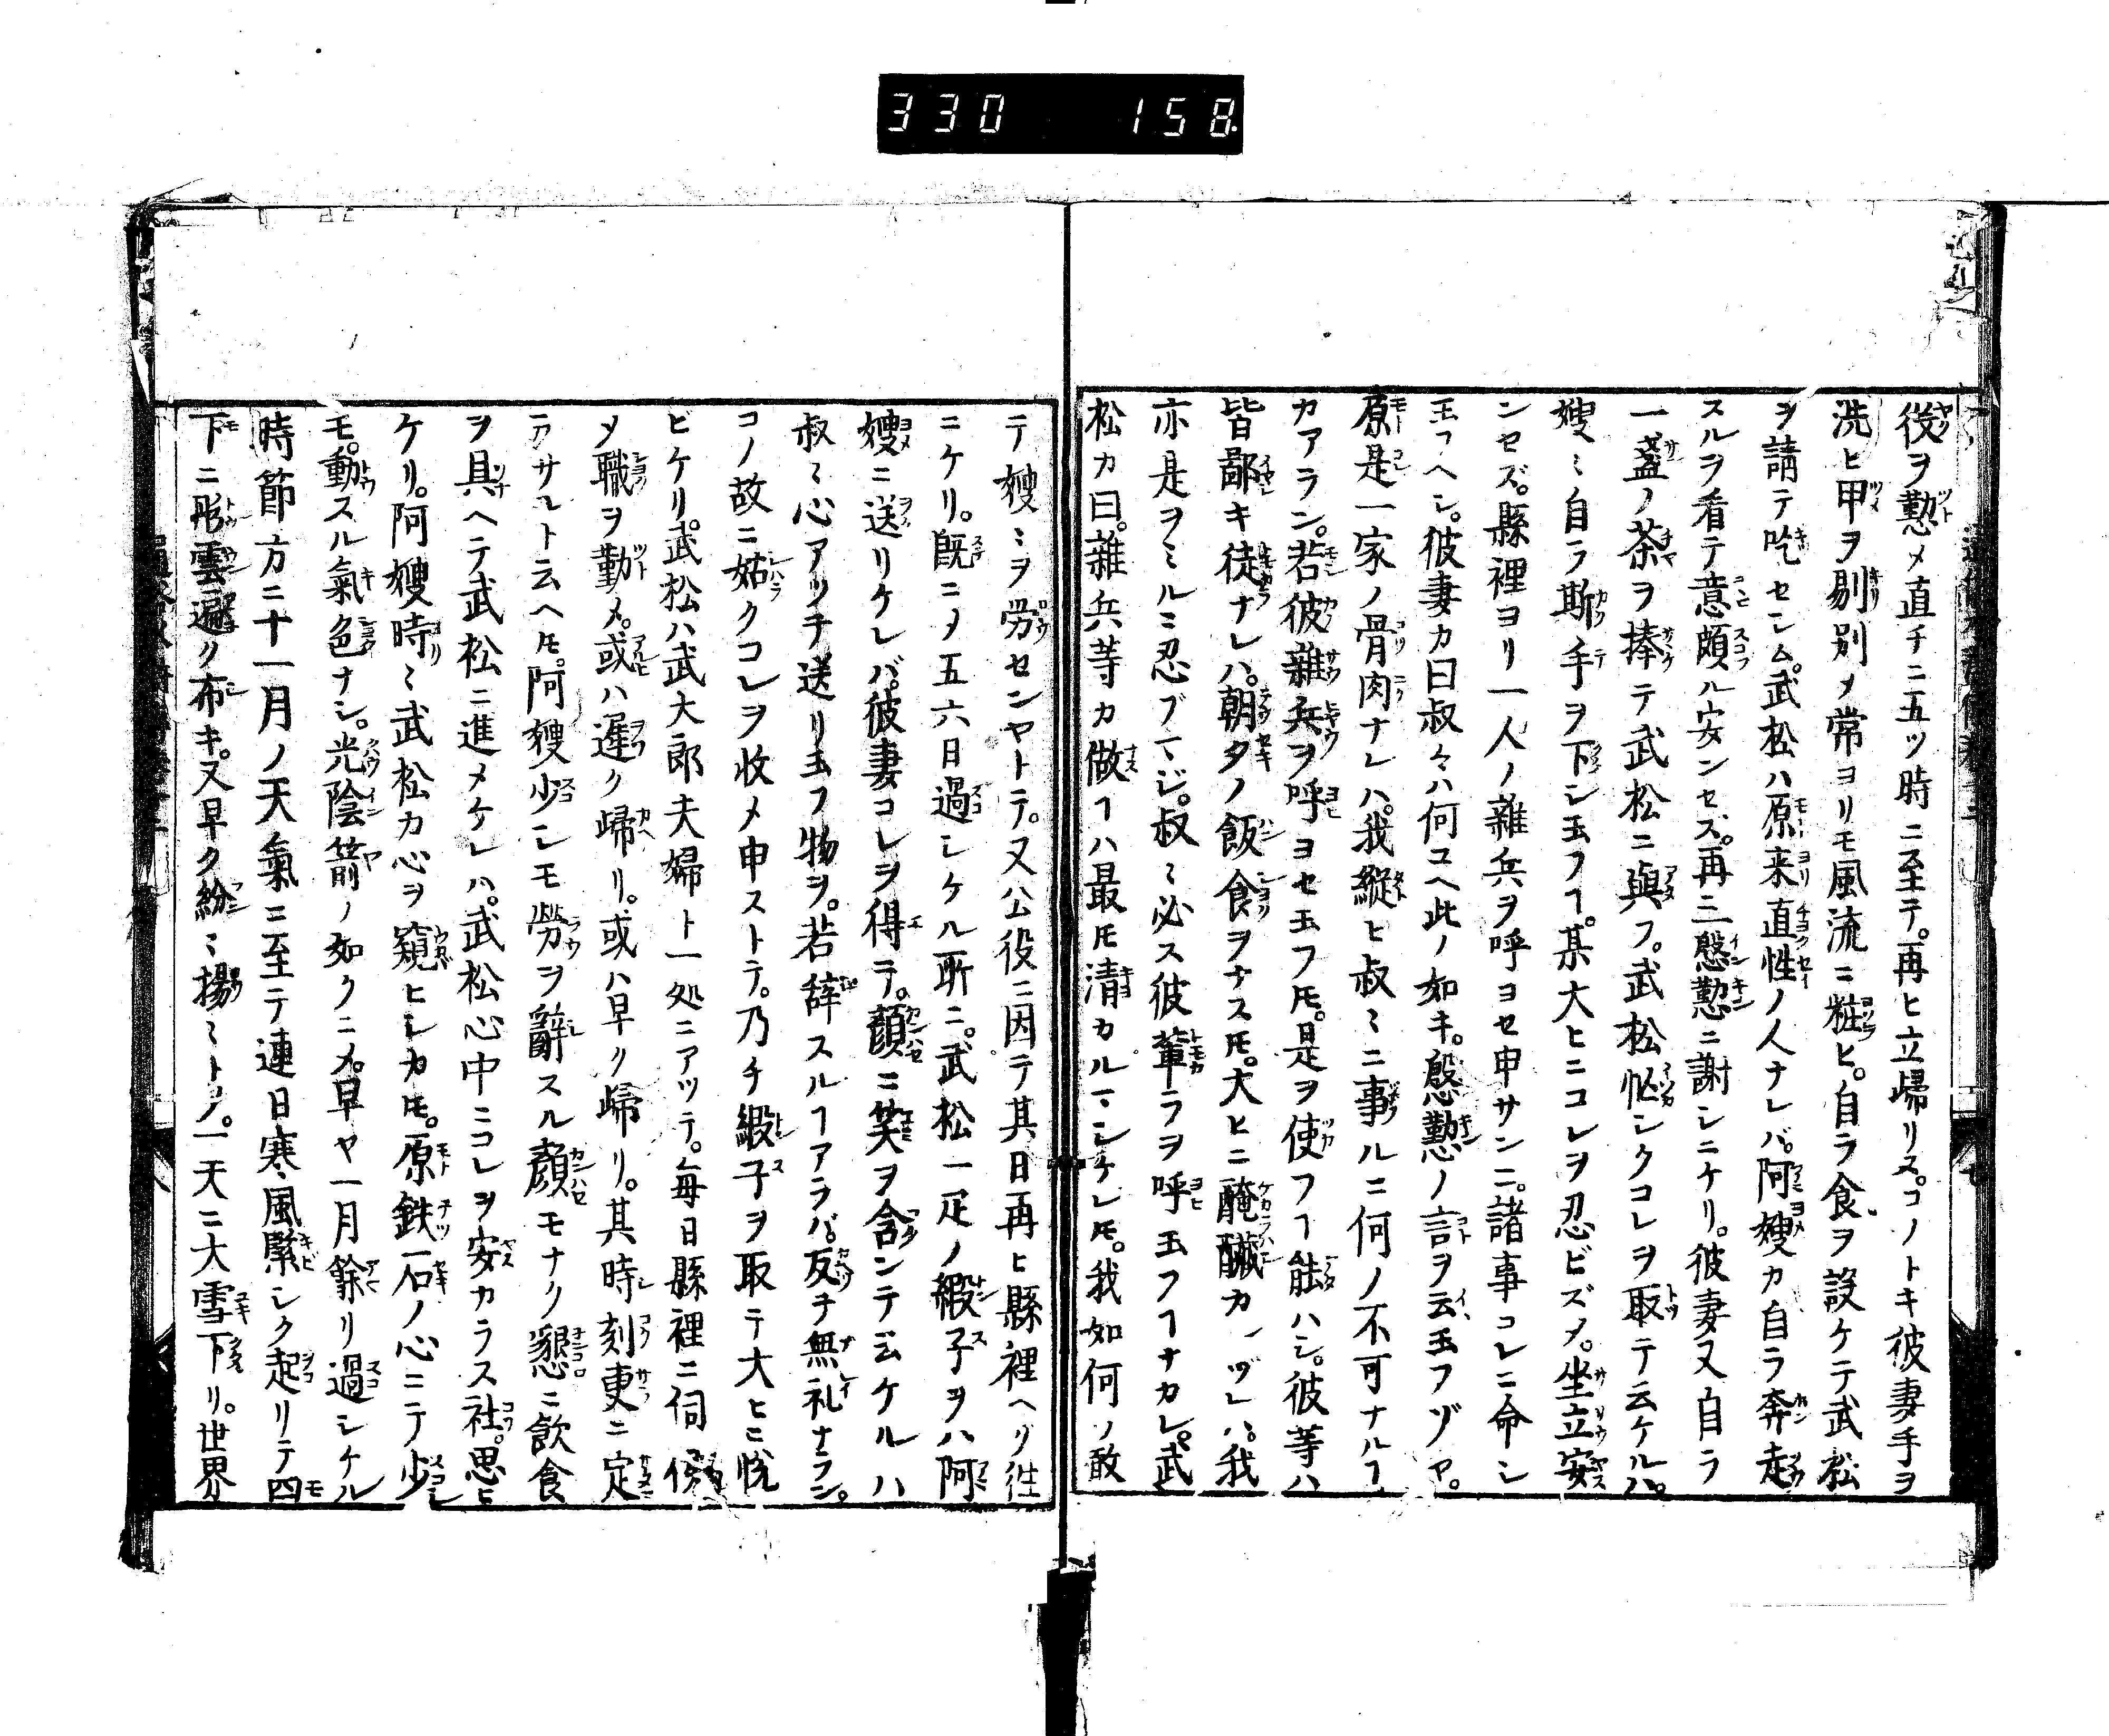 330 158.
役ヲ懃メ直チニ五ツ時ニ至テ。再ヒ立歸リヌ。コノトキ彼妻手ヲ
洗ヒ甲ヲ剔別メ常ヨリモ風流ニ粧ヒ。自ラ食ヲ設ケテ武松
ヲ請テ吃センム。武松ハ原来直性ノ人ナレバ。阿嫂カ自ラ奔走
スルヲ看テ意頗ル安ンセズ。再三慇懃ニ謝シニケリ。彼妻又自ラ
一盞ノ茶ヲ捧テ武松ニ與フ。武松忙シクコレヲ取テ云ケルハ。
嫂〻自ラ斯手ヲ下シ玉フヿ。某大ヒニコレヲ忍ビズメ。坐立安
ンセズ。縣裡ヨリ一人ノ雜兵ヲ呼ヨセ申サンニ。諸事コレニ命シ
玉フヘシ。彼妻カ曰叔々ハ何ユヘ此ノ如キ。慇懃ノ言ヲ云玉フゾヤ。
原是一家ノ骨肉ナレハ。我縱ヒ叔〻ニ事ルニ何ノ不可ナルヿ
カアラン。若彼雜兵ヲ呼ヨセ玉フ𪜈。是ヲ使フヿ能ハシ。彼等ハ
皆鄙キ徒ナレハ。朝夕ノ飯食ヲナス𪜈。大ヒニ醃臢カヽヅレハ。我
亦是ヲミルニ忍ブマジ。叔〻必ス彼輩ラヲ呼玉フヿナカレ。武
松カ曰。雜兵等カ做ヿハ最𪜈清カルマシケレ𪜈。我如何ソ敢
テ嫂〻ヲ労センヤトテ。又公役ニ因テ其日再ヒ縣裡ヘソ徃
ニケリ。既ニメ五六日過シケル所ニ。武松一疋ノ緞子ヲハ阿
嫂ニ送リケレバ。彼妻コレヲ得テ。顔ニ笑ヲ含ンテ云ケルハ
叔〻心アツチ送リ玉フ物ヲ。若辞スルヿアラバ。反チ無礼ナラン。
コノ故ニ姑クコレヲ收メ申ストテ。乃チ緞子ヲ取テ大ヒニ悅
ビケリ。武松ハ武大郎夫婦ト一処ニアツテ。毎日縣裡ニ伺候
メ職ヲ勤メ。或ハ遲ク歸リ。或ハ早ク歸リ。其時刻更ニ定
ラサレト云ヘ𪜈。阿嫂少シモ勞ヲ辭スル顔モナク懇ニ飲食
ヲ具ヘテ武松ニ進メケレハ。武松心中ニコレヲ安カラス社。思ヒ
ケリ。阿嫂時〻武松カ心ヲ窺ヒシカ𪜈。原鉄石ノ心ニテ少
モ。動スル氣色ナシ。光陰箭ノ如クニメ。早ヤ一月餘リ過シケル
時節方ニ十一月ノ天氣ニ至テ連日寒風緊シク起リテ四
下ニ彤雲遍ク布キ。又早ク紛〻揚〻トメ。一天ニ大雪下リ。世界